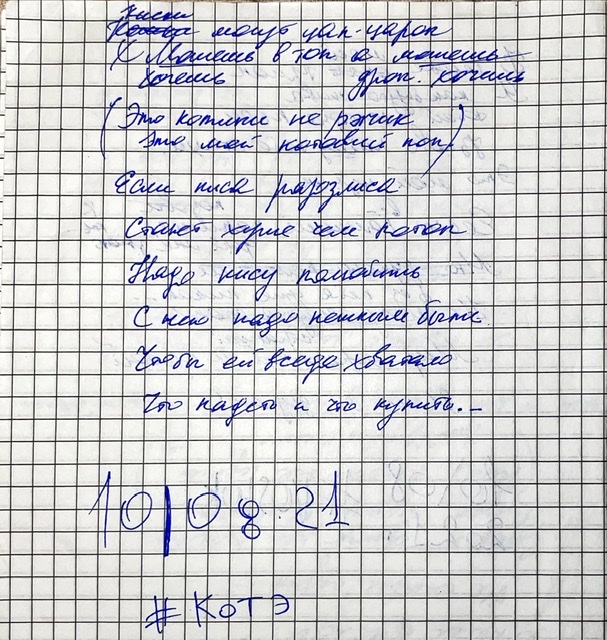 Киски
могут цап-царап
Можешь в топ а можешь
Хочешь дроп хочешь
(Это котики не рэпчик
Это мой котовий поп)
Если киса разозлиса
Станет хуже чем потоп
Надо кису полюбить
С ней надо нежным быть
Чтобы ей всегда хватало
Что надеть и что купить.
10|08.21
#КОТЭ